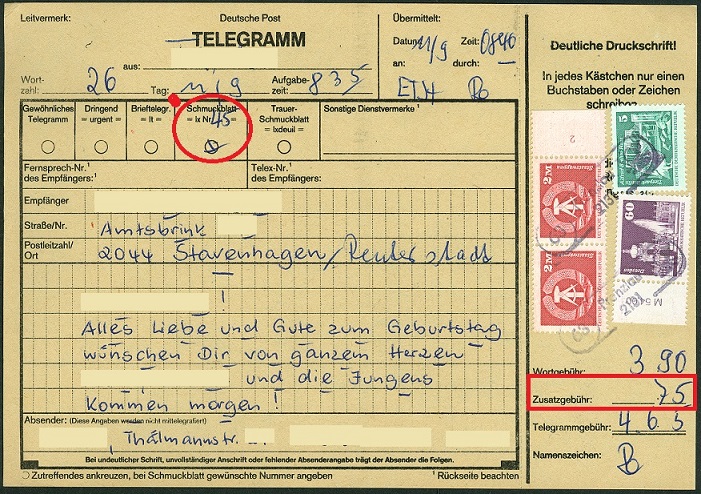 Leitvermerk:
Deutsche Post
TELEGRAMM
aus:
Wort-
zahl: 26 Tag: 11/9 Aufgabe-
zeit: 835
Übermittelt:
Datum: 11/9 Zeit: 0840
an: durch:
Deutliche Druckschrift!
In jedes Kästchen nur einen
Buchstaben oder Zeichen
schreiben
Gewöhnliches
Telegramm
Dringend
= urgent =
Brieftelegr.
= lt =
Schmuckblatt
= lx Nr. 45
Trauer-
Schmuckblatt
= lxdeuil =
Sonstige Dienstvermerke ¹
Fernsprech-Nr.¹
des Empfängers:
Telex-Nr.¹
des Empfängers:
Empfänger
Straße/Nr. Amtsbrink
Postleitzahl/
Ort 2044 Stavenhagen/Reuterstadt
!
Alles Liebe und Gute zum Geburtstag
wünschen Dir von ganzem Herzen
und die Jungens
kommen morgen!
Absender: (Diese Angaben werden nicht mittelegrafiert)
Thälmannstr.
Bei undeutlicher Schrift, unvollständiger Anschrift oder fehlender Absenderangabe trägt der Absender die Folgen.
Zutreffendes ankreuzen, bei Schmuckblatt gewünschte Nummer angeben
¹ Rückseite beachten
Wortgebühr: 3 90
Zusatzgebühr: 75
Telegrammgebühr: 4.65
Namenszeichen:
2 M
2 M
5
60
Dresden
2
Prenzlau
2131